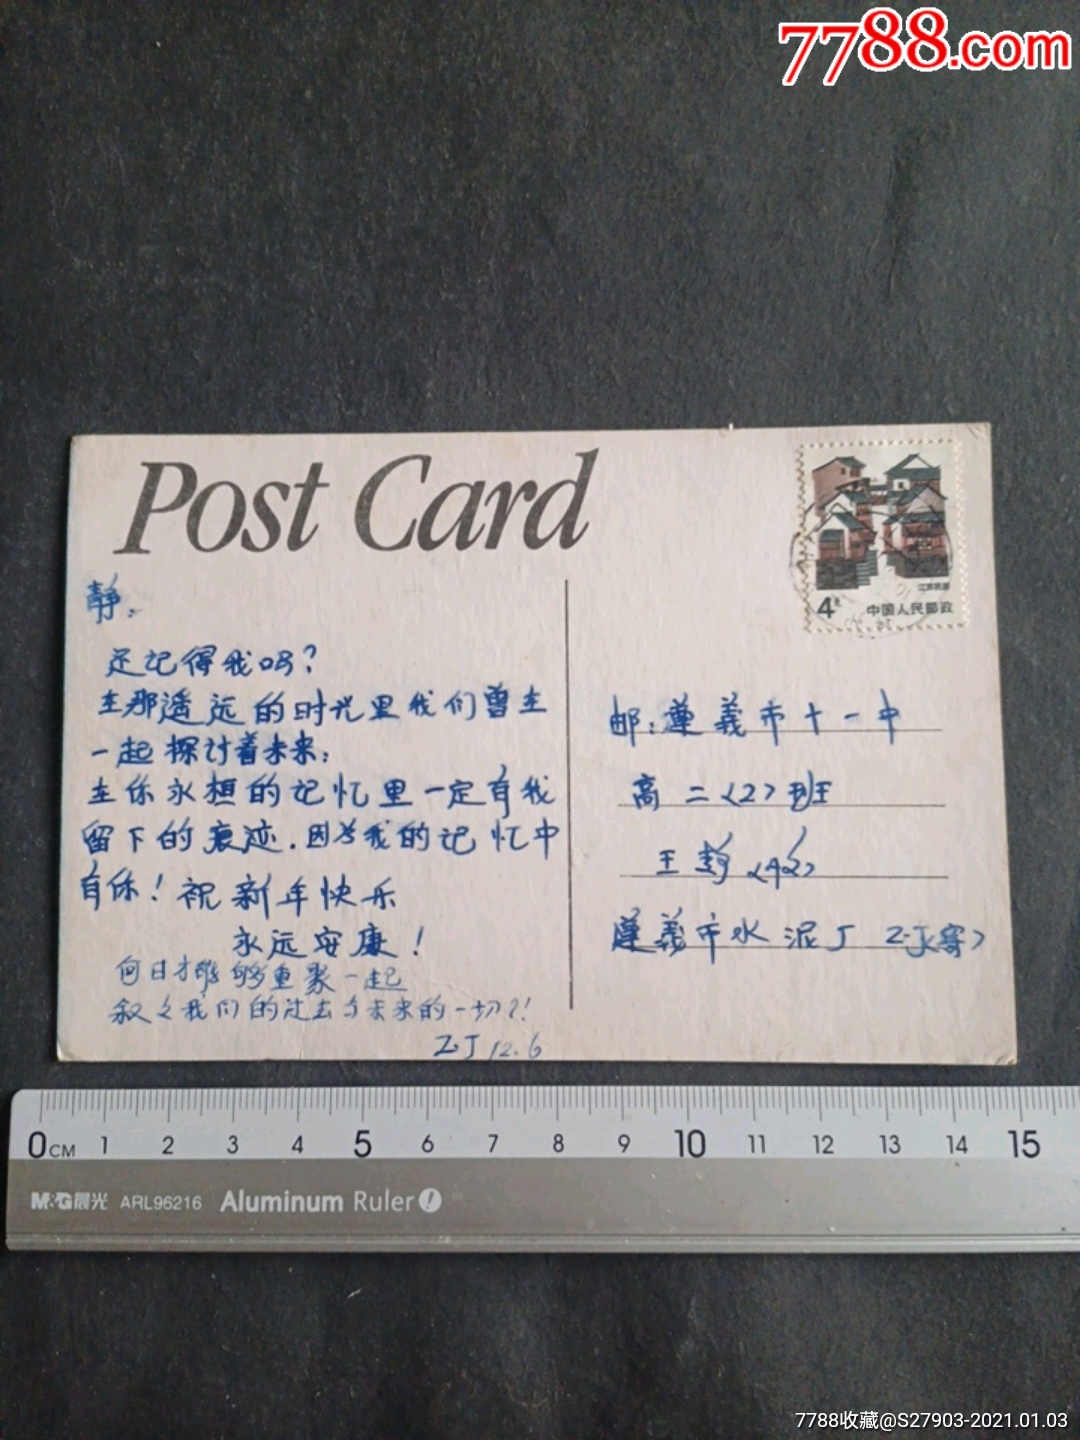 7788.com
Post Card
江苏民居
4分 中国人民邮政
静:
还记得我吗?
在那遥远的时光里我们曾在
一起探讨着未来;
在你永恒的记忆里一定有我
留下的痕迹.因为我的记忆中
有你!祝新年快乐
永远安康!
何日才能够重聚一起
叙叙我们的过去与未来的一切?!
Z.J 12.6
邮:遵義市十一中
高二<2>班
王静<收>
遵義市水泥厂 Z.J<寄>
0CM 1 2 3 4 5 6 7 8 9 10 11 12 13 14 15
M&G晨光 ARL96216 Aluminum Ruler
7788收藏@S27903-2021.01.03